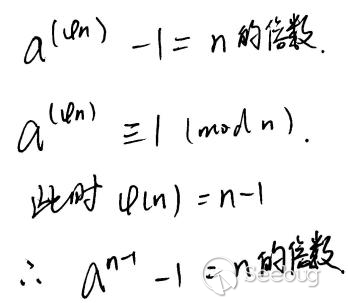 a^(φn) -1 = n的倍数.
a^(φn) ≡ 1 (mod n).
此时 φ(n) = n-1
∴ a^n-1 -1 = n的倍数.
Seebug